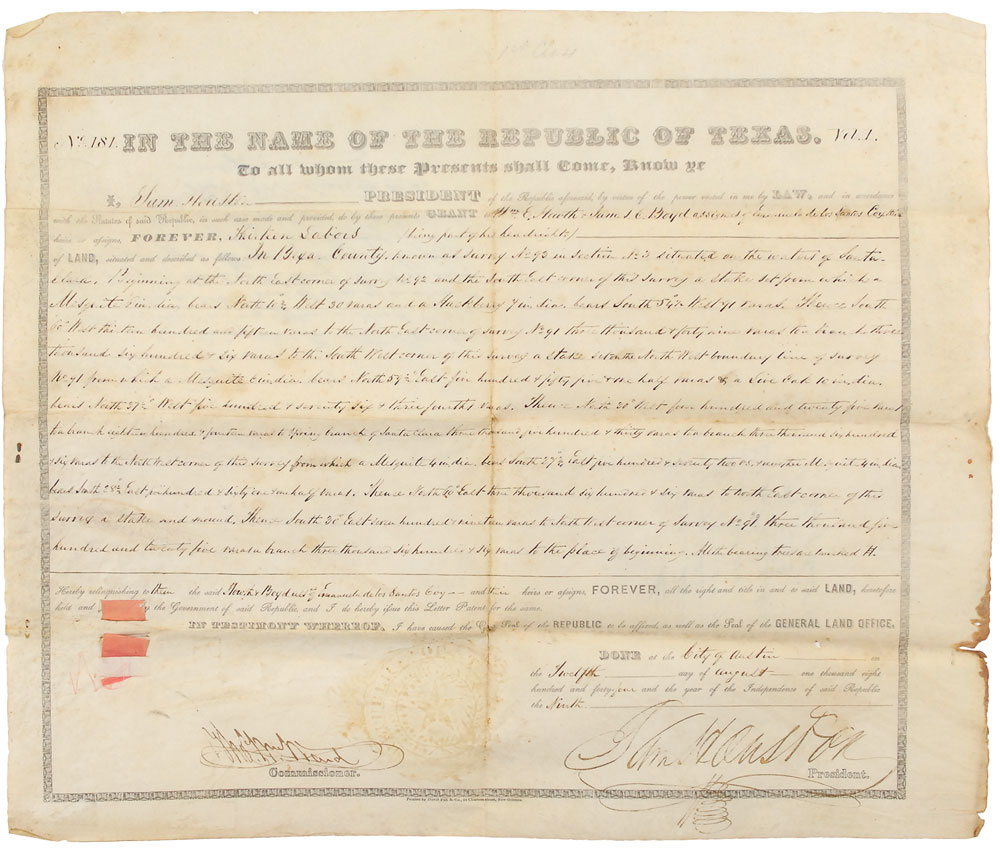 1st Class
No. 181. IN THE NAME OF THE REPUBLIC OF TEXAS. Vol. 1.
To all whom these Presents shall Come, Know ye
I, Sam Houston PRESIDENT of the Republic aforesaid, by virtue of the power vested in me by LAW, and in accordance
with the Statutes of said Republic, in such case made and provided, do by these presents GRANT to Wm E. Howth & James C Boyd assignees of Emanuela de los Santos Coy their
heirs or assigns, FOREVER, Thirteen Labors (being part of her headright)
of LAND, situated and described as follows: In Bexar County, known as survey No 92 in Section No 3 situated on the waters of Santa
clara. Beginning at the North East corner of survey No 92 and the South East corner of this survey a stake set from which a
Mesquite 8 in dia. bears North 10½° West 30 varas and a Hackberry 7 in dia. bears South 54½° West 91 varas. Thence South
60° West thirteen hundred and fifteen varas to the North East corner of survey No 91 three thousand & forty nine varas to a branch three
thousand six hundred & six varas to the South West corner of this survey a stake set on the North West boundary line of survey
No 91 from which a Mesquite 6 in dia. bears North 59½° East five hundred & fifty five & one half varas & a Live Oak 10 in dia.
bears North 27½° West five hundred & seventy six & three fourths varas. Thence North 30° West four hundred and twenty five varas
to a branch eighteen hundred & fourteen varas to Spring branch of Santa Clara three thousand five hundred & thirty varas to a branch three thousand six hundred
& six varas to the North West corner of this survey from which a Mesquite 4 in dia. bears South 27½° East five hundred & seventy two varas & another Mesquite 4 in dia.
bears South 28½° East five hundred & sixty one & one half varas. Thence North 60° East three thousand six hundred & six varas to North East corner of this
survey a stake and mound. Thence South 30° East nine hundred & nineteen varas to North West corner of Survey No 98 three thousand five
hundred and twenty five varas a branch three thousand six hundred & six varas to the place of beginning. All the bearing trees are marked H.
Hereby relinquishing to them the said Howth & Boyd assees of Emanuela de los Santos Coy and their heirs or assigns, FOREVER, all the right and title in and to said LAND, heretofore
held and by the Government of said Republic, and I do hereby issue this Letter Patent for the same.
IN TESTIMONY WHEREOF, I have caused the Great Seal of the REPUBLIC to be affixed, as well as the Seal of the GENERAL LAND OFFICE.
DONE at the City of Austin on
the Twelfth day of August one thousand eight
hundred and forty four and the year of the Independence of said Republic
the Ninth
Thos Wm Ward
Commissioner.
Sam Houston
President.